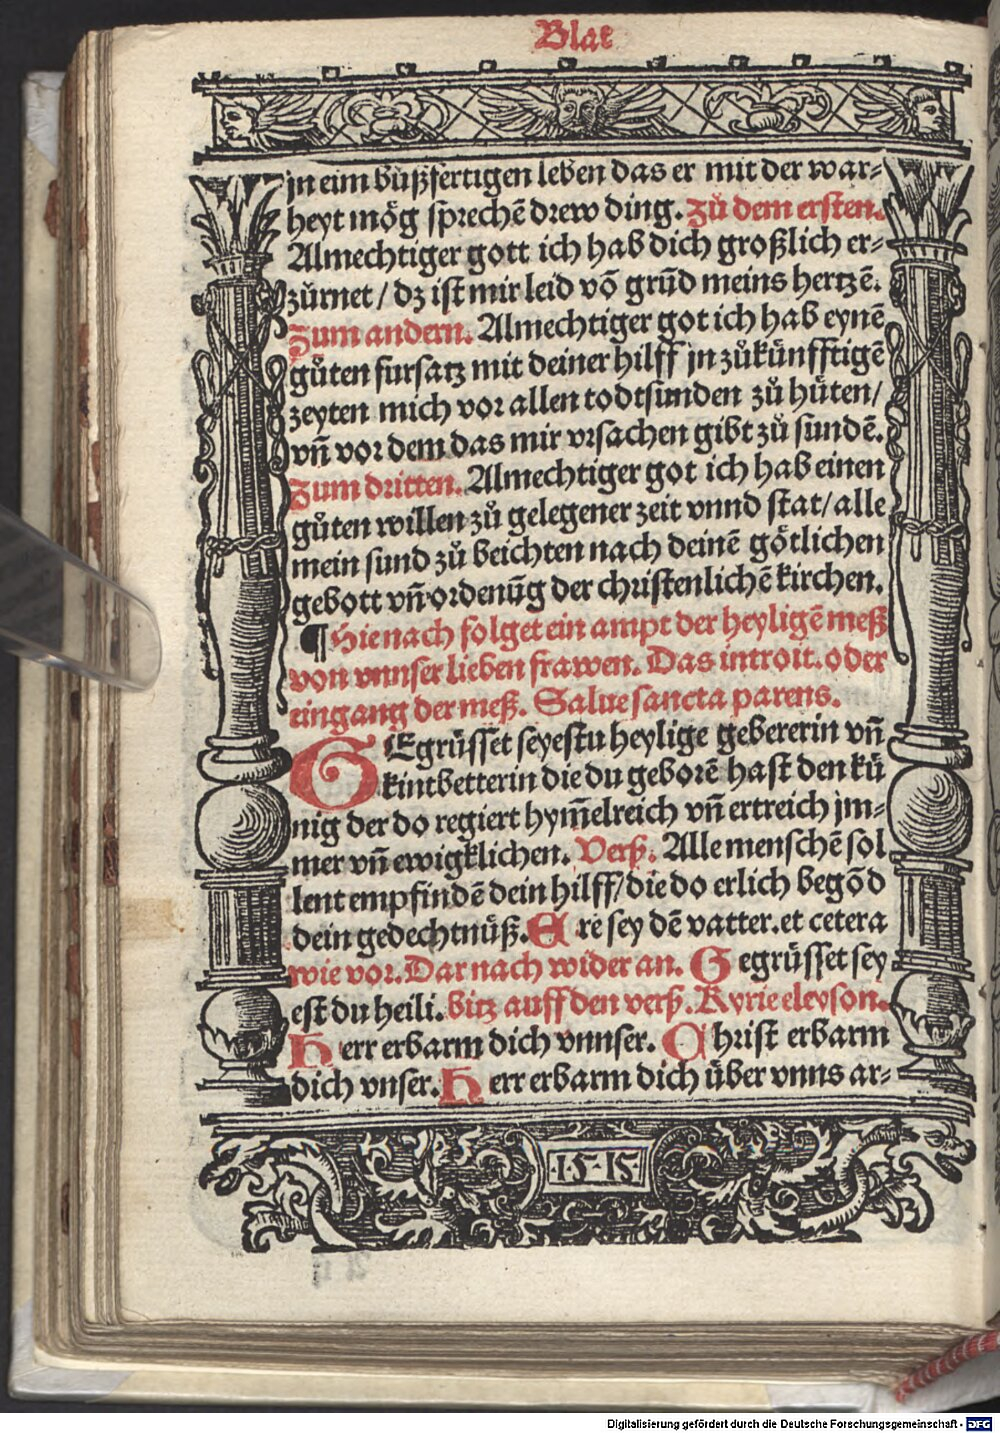 Blat
jn eim bůßfertigen leben das er mit der war⸗
heyt mög sprechē drew ding. Zů dem ersten.
Almechtiger gott ich hab dich großlich er⸗
zůrnet / dz ist mir leid vō grūd meins hertzē.
Zum andern. Almechtiger got ich hab eynē
gůten fursatz mit deiner hilff jn zůkünfftigē
zeyten mich vor allen todtsunden zů hüten/
vn̄ vor dem das mir vrsachen gibt zů sundē.
Zum dritten. Almechtiger got ich hab einen
gůten willen zů gelegener zeit vnnd stat/ alle
mein sund zů beichten nach deinē götlichen
gebott vn̄ ordenūg der christenlichē kirchen.
¶ Hienach folget ein ampt der heyligē meß
von vnnser lieben frawen. Das introit. oder
eingang der meß. Salue sancta parens.
GEgrüsset seyestu heylige gebererin vn̄
kintbetterin die du geborē hast den kü
nig der do regiert hym̄elreich vn̄ ertreich jm⸗
mer vn̄ ewigklichen. Verß. Alle menschē sol
lent empfindē dein hilff/ die do erlich begōd
dein gedechtnüß. Ere sey dē vatter. et cetera
wie vor. Dar nach wider an. Gegrüsset sey
est du heili. bitz auff den verß. Kyrieeleyson.
Herr erbarm dich vnnser. Christ erbarm
dich vnser. Herr erbarm dich über vnns ar⸗
·1·5·15·
Digitalisierung gefördert durch die Deutsche Forschungsgemeinschaft - DFG